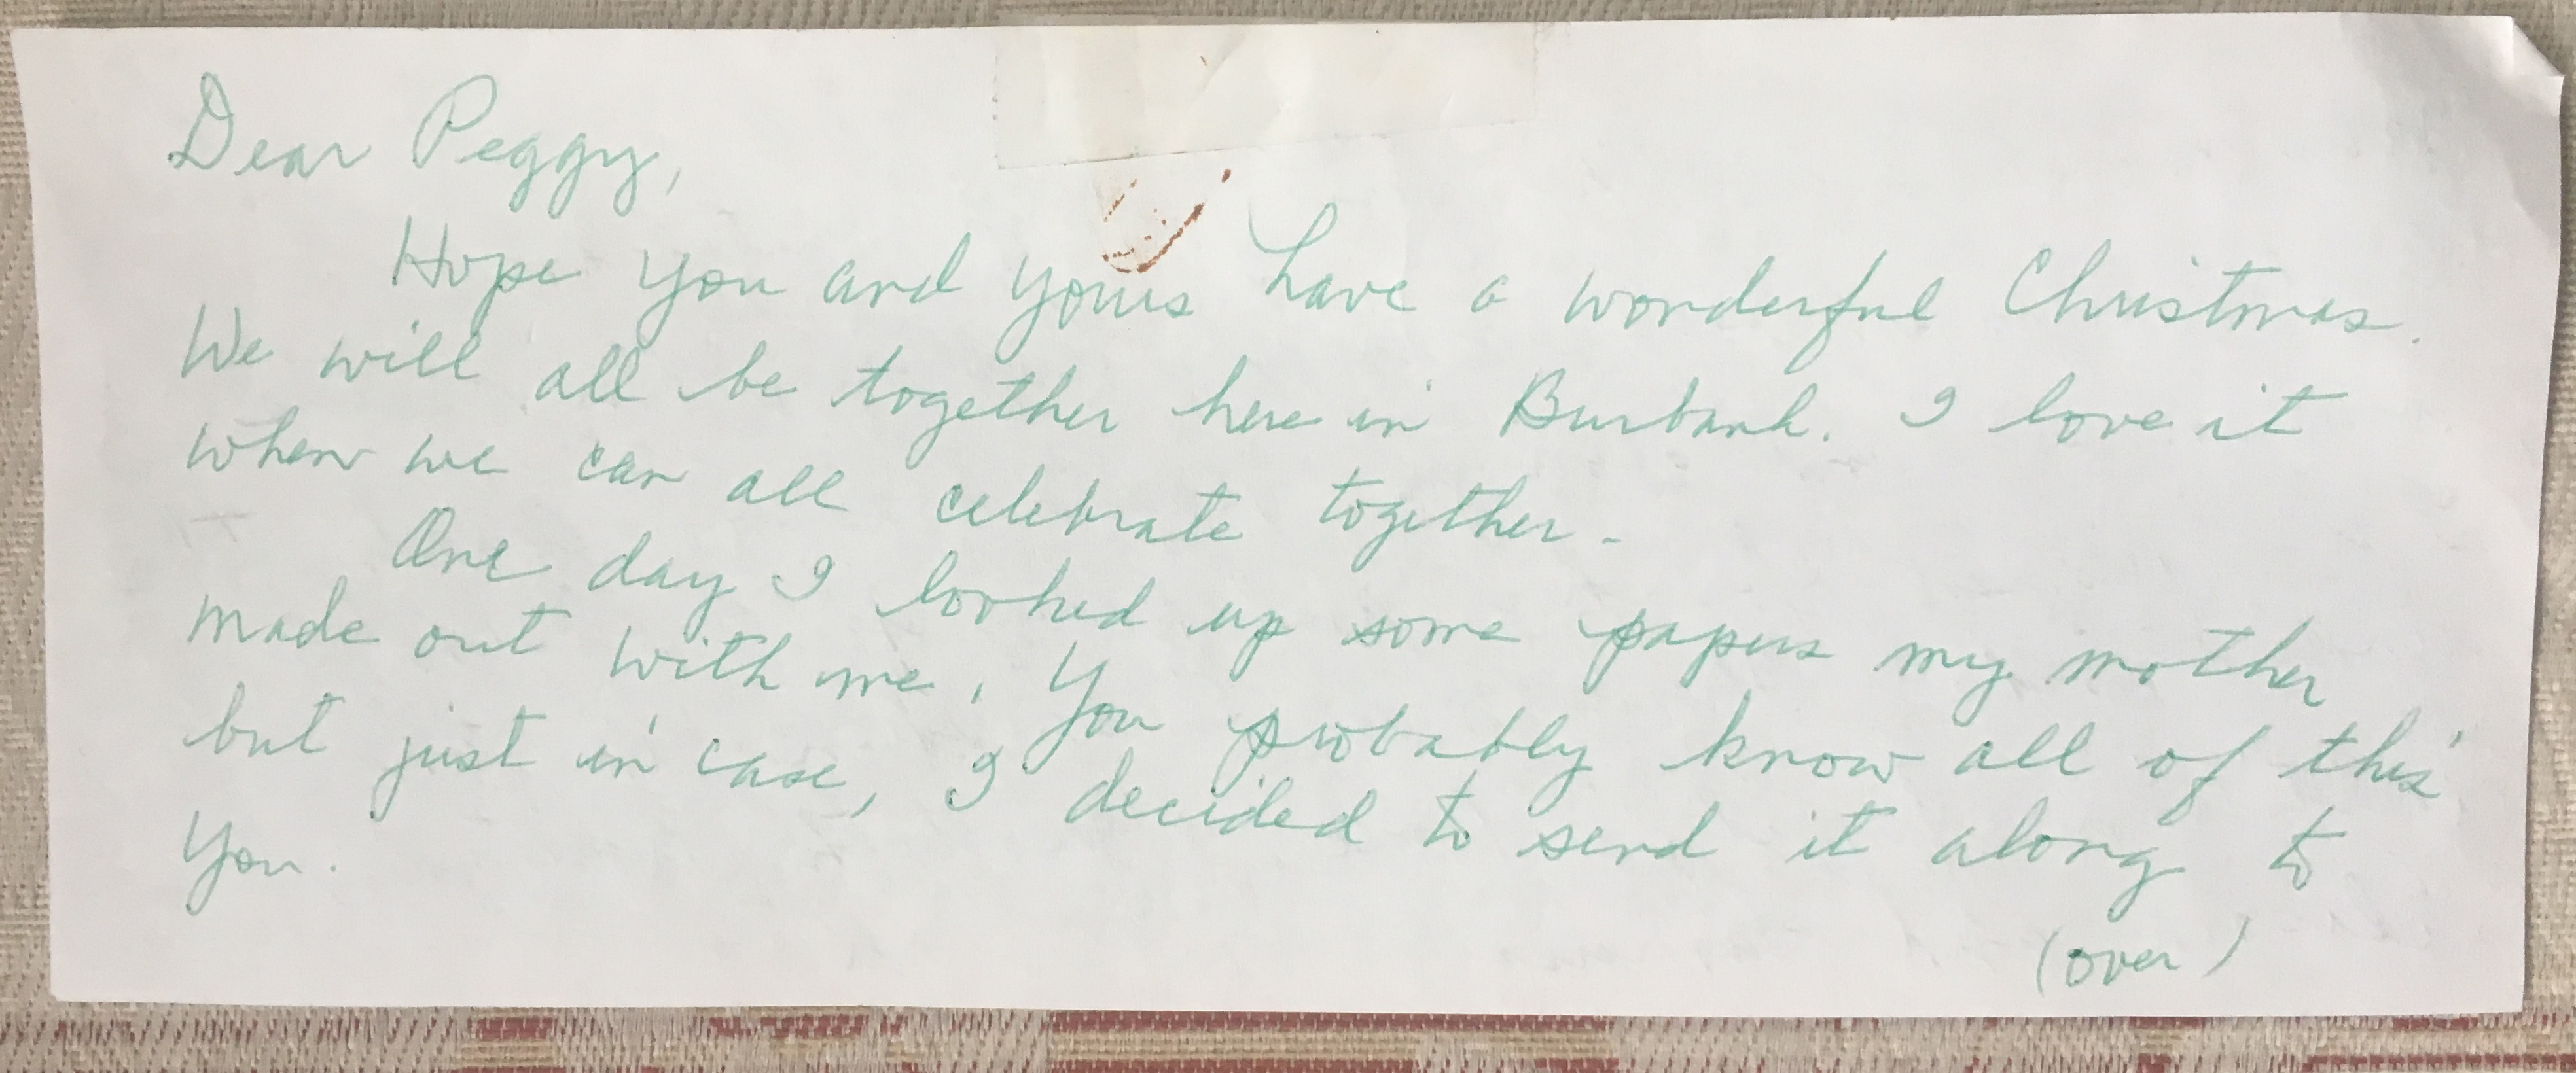 Dear Peggy,
Hope you and yours have a wonderful Christmas.
We will all be together here in Burbank. I love it
when we can all celebrate together.
One day I looked up some papers my mother
made out with me. You probably know all of this
but just in case, I decided to send it along to
you.
(over)